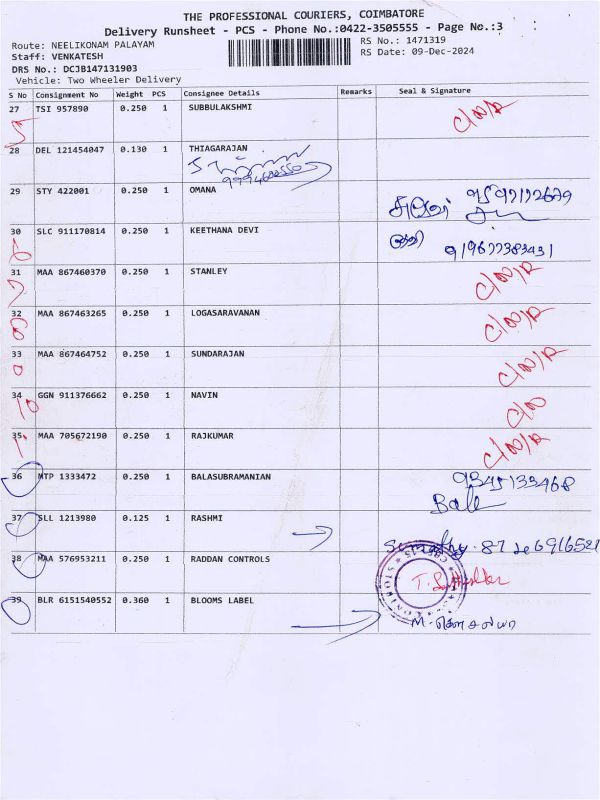 THE PROFESSIONAL COURIERS, COIMBATORE
Delivery Runsheet - PCS - Phone No.:0422-3505555 - Page No.:3
Route: NEELIKONAM PALAYAM
RS No.: 1471319
Staff: VENKATESH
RS Date: 09-Dec-2024
DRS No.: DCJB147131903
Vehicle: Two Wheeler Delivery
S No Consignment No Weight PCS Consignee Details Remarks Seal & Signature
27 TSI 957890 0.250 1 SUBBULAKSHMI C/N/R
5
28 DEL 121454047 0.130 1 THIAGARAJAN
29 STY 422001 0.250 1 OMANA
30 SLC 911170814 0.250 1 KEETHANA DEVI
31 MAA 867460370 0.250 1 STANLEY C/N/R
32 MAA 867463265 0.250 1 LOGASARAVANAN C/N/R
8
33 MAA 867464752 0.250 1 SUNDARAJAN C/N/R
34 GGN 911376662 0.250 1 NAVIN C/N
10
35 MAA 705672190 0.250 1 RAJKUMAR C/N/R
36 MTP 1333472 0.250 1 BALASUBRAMANIAN 9345133468
Bale
37 SLL 1213980 0.125 1 RASHMI
38 MAA 576953211 0.250 1 RADDAN CONTROLS
39 BLR 6151540552 0.360 1 BLOOMS LABEL
M. கௌசல்யா